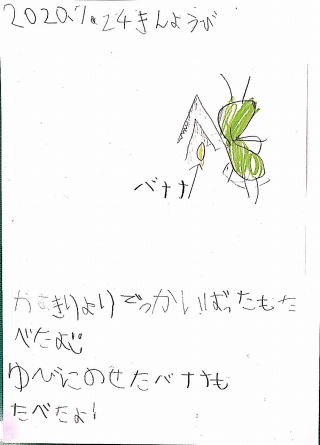 2020.7.24きんようび
バナナ
かむきりよりでっかいばったもた
べたよ
ゆびにのせたバナナも
たべたよ!